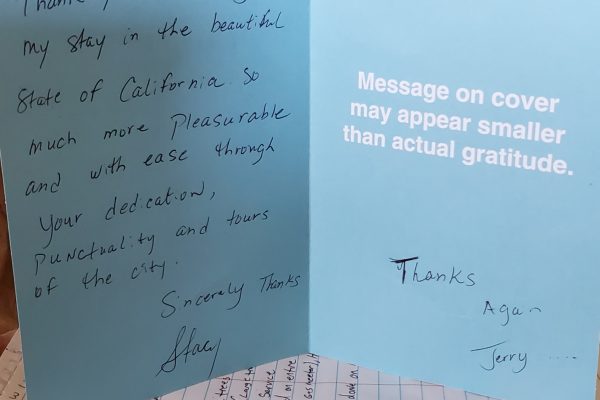 Thank
my stay in the beautiful
State of California. So
much more Pleasurable
and with ease through
Your dedication,
Punctuality and tours
of the city.
Sincerely Thanks
Stacy
Message on cover
may appear smaller
than actual gratitude.
Thanks
Again
Jerry ....
Service